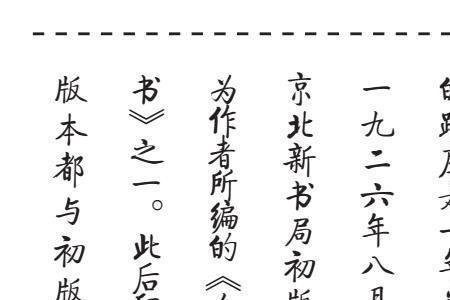 一九二六年八月
京北新书局初版
为作者所编的《
书》之一。此后
版本都与初版